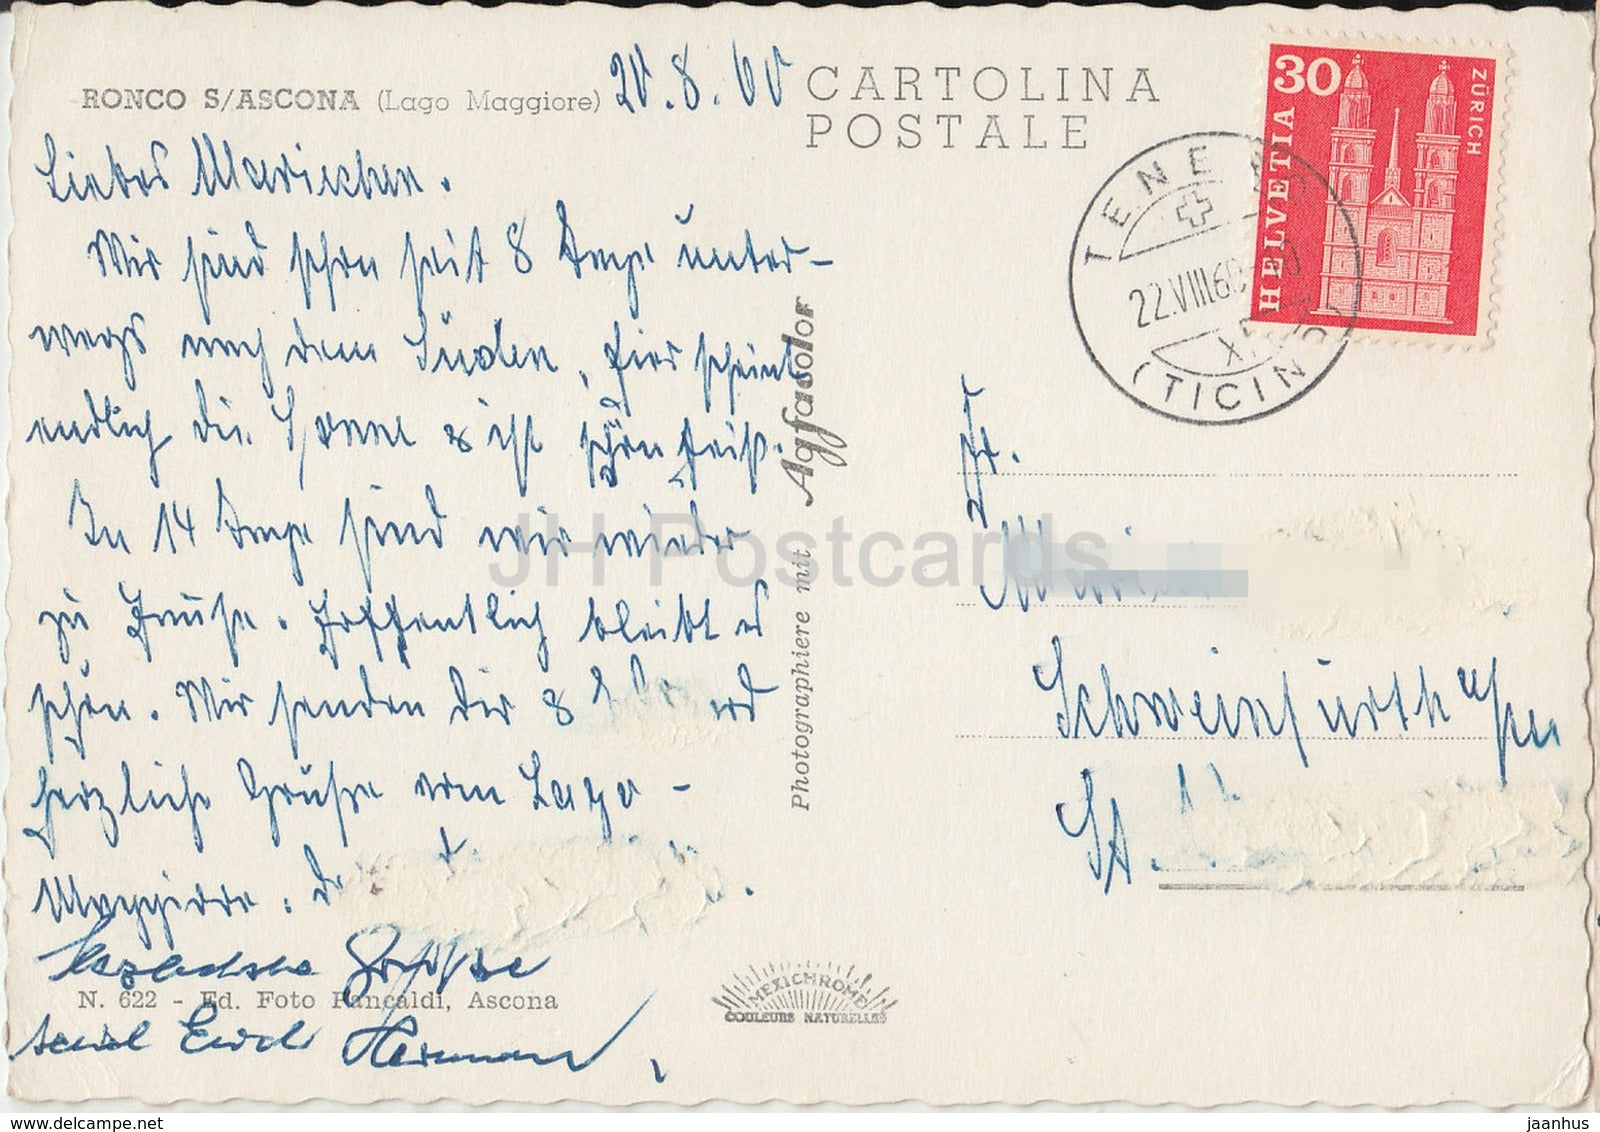 RONCO S/ASCONA (Lago Maggiore) 20.8.60
Liebes Mariechen.
Wir sind schon seit 8 Tage unter-
wegs nach dem Süden, hier scheint
endlich die Sonne & ist schön heiß.
In 14 Tage sind wir wieder
zu Hause. Hoffentlich bleibt es
schön. Wir senden Dir &
herzliche Grüße vom Lago-
Maggiore.
Herzliche Grüße
N. 622 - Ed. Foto Pancaldi, Ascona
Hermann
Photographiere mit Agfacolor
MEXICHROME
COULEURS NATURELLES
CARTOLINA
POSTALE
HELVETIA
30
ZÜRICH
TENE
22.VIII.60
(TICIN
Fr.
Schweinfurth a/M
St.
JH Postcards
delcampe.net
jaanhus